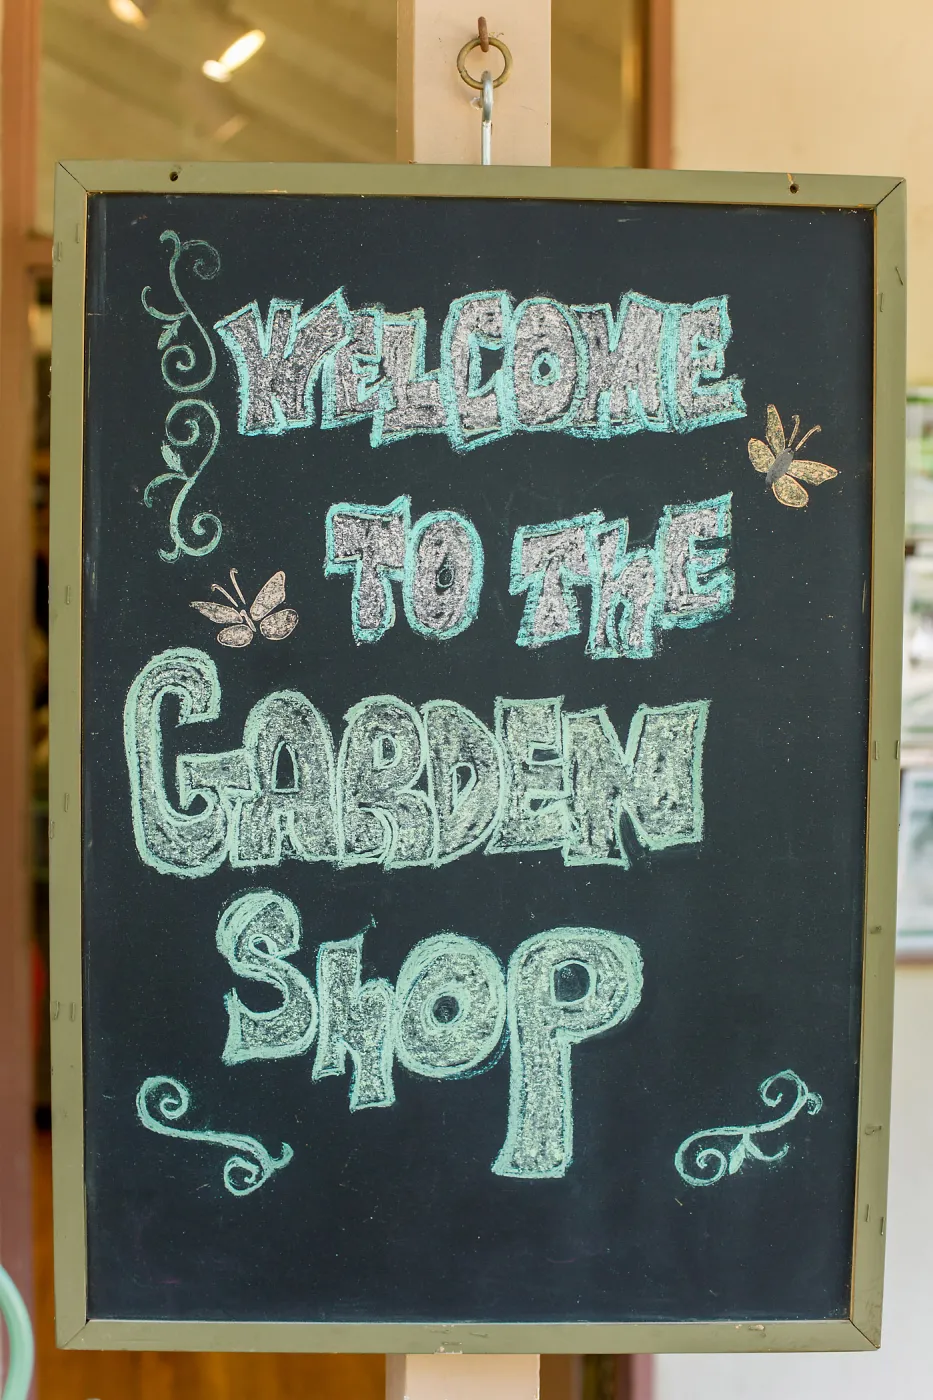 WELCOME
TO THE
GARDEN
ShOP